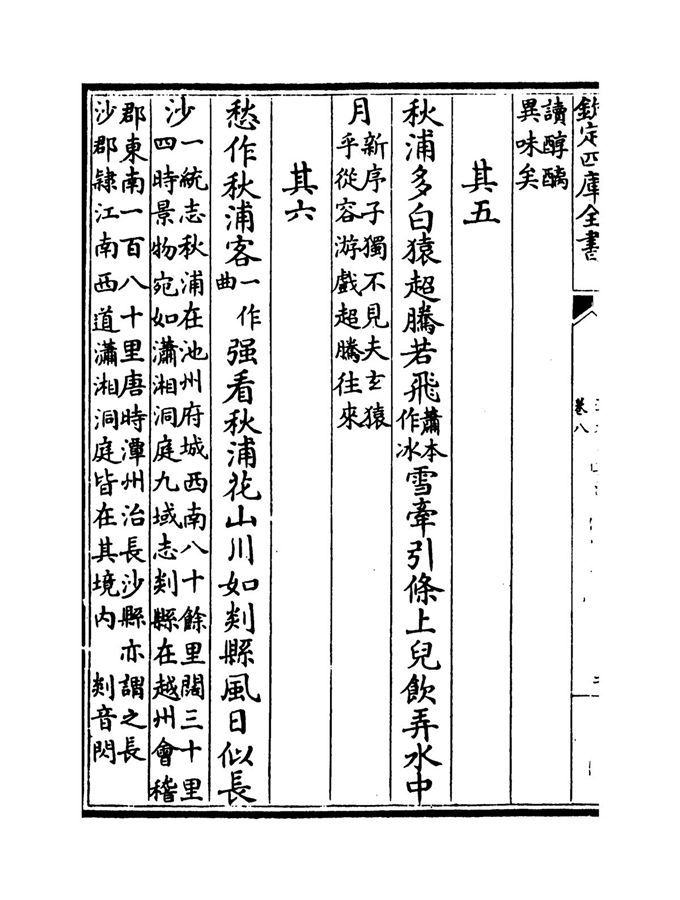 欽定四庫全書
卷八
讀醇醨
異味矣
其五
秋浦多白猿超騰若飛蕭本作冰雪牽引條上兒飲弄水中
月新序子獨不見夫玄猿
乎從容游戲超騰往來
其六
愁作秋浦客一作曲强看秋浦花山川如剡縣風日似長
沙一統志秋浦在池州府城西南八十餘里闊三十里
四時景物宛如瀟湘洞庭九域志剡縣在越州會稽
郡東南一百八十里唐時潭州治長沙縣亦謂之長
沙郡隸江南西道瀟湘洞庭皆在其境内 剡音閃